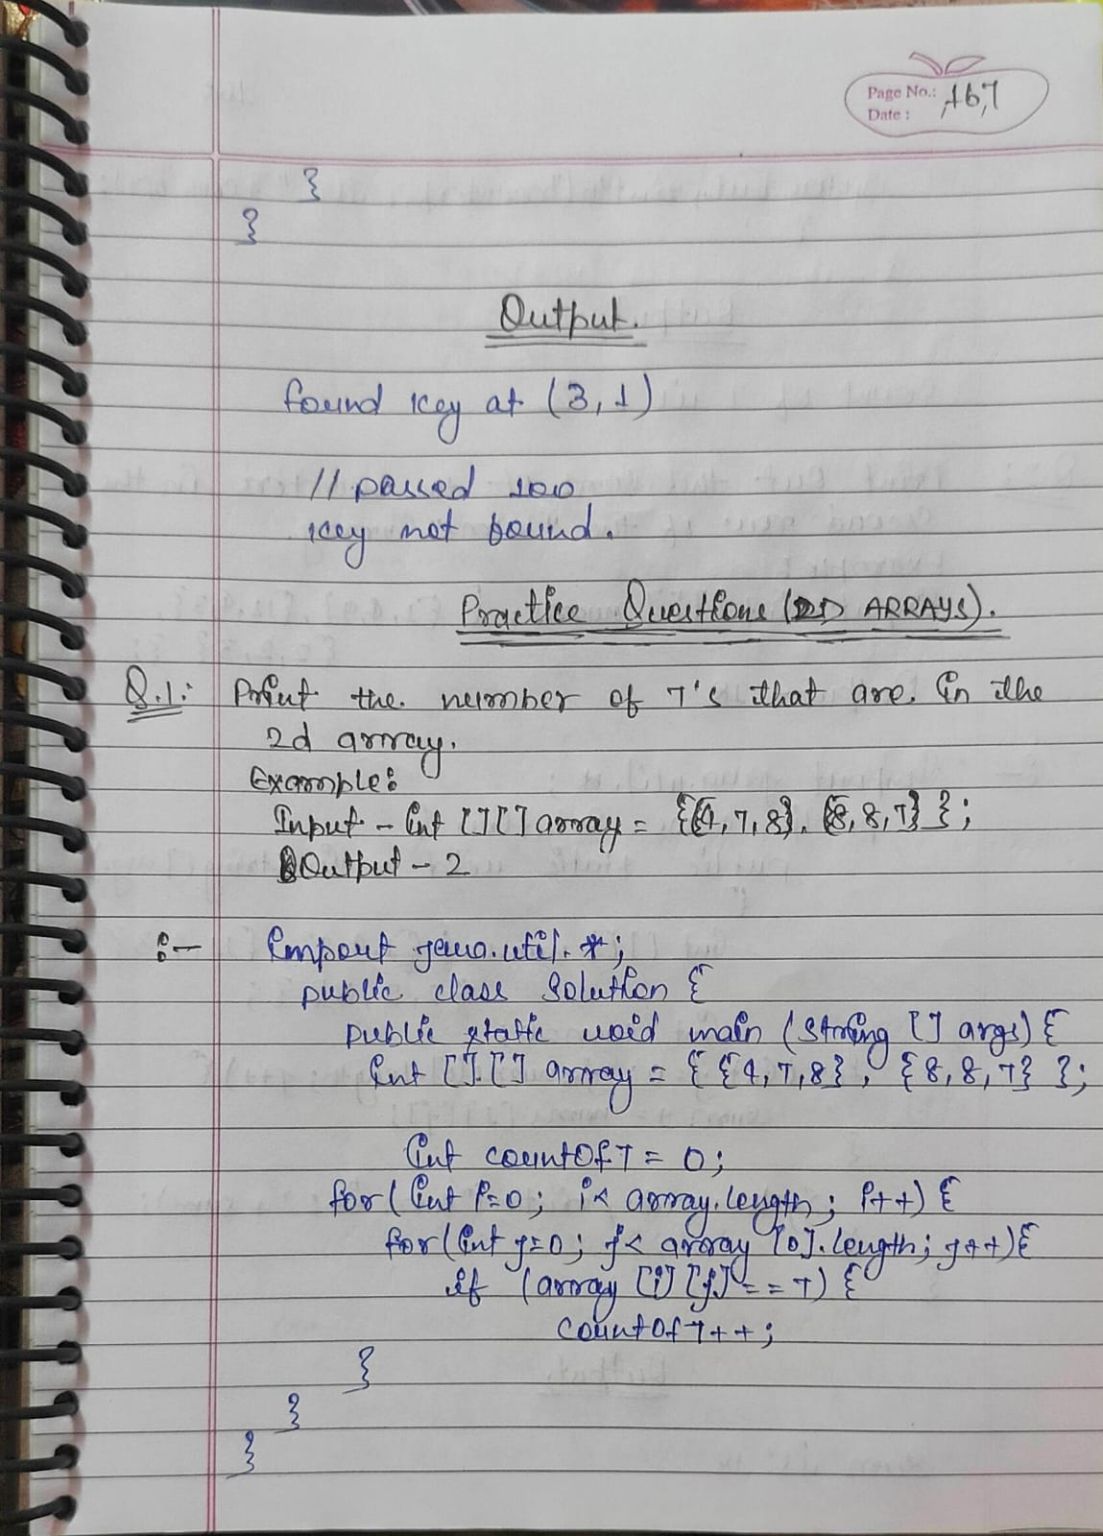 Page No.: 167
Date :
}
}
Output.
found key at (3,1)
// passed 100
key not found.
Practice Questions (2D ARRAYS).
Q.1: Print the number of 7's that are in the
2d array.
Example:
Input - int [][] array = {{4,7,8}, {8,8,7} };
Output - 2
:- import java.util.*;
public class Solution {
public static void main (String [] args) {
int [][] array = { {4,7,8}, {8,8,7} };
int countOf7 = 0;
for( int i=0; i< array.length; i++) {
for(int j=0; j< array [0].length; j++){
if (array [i][j] == 7) {
countOf7++;
}
}
}